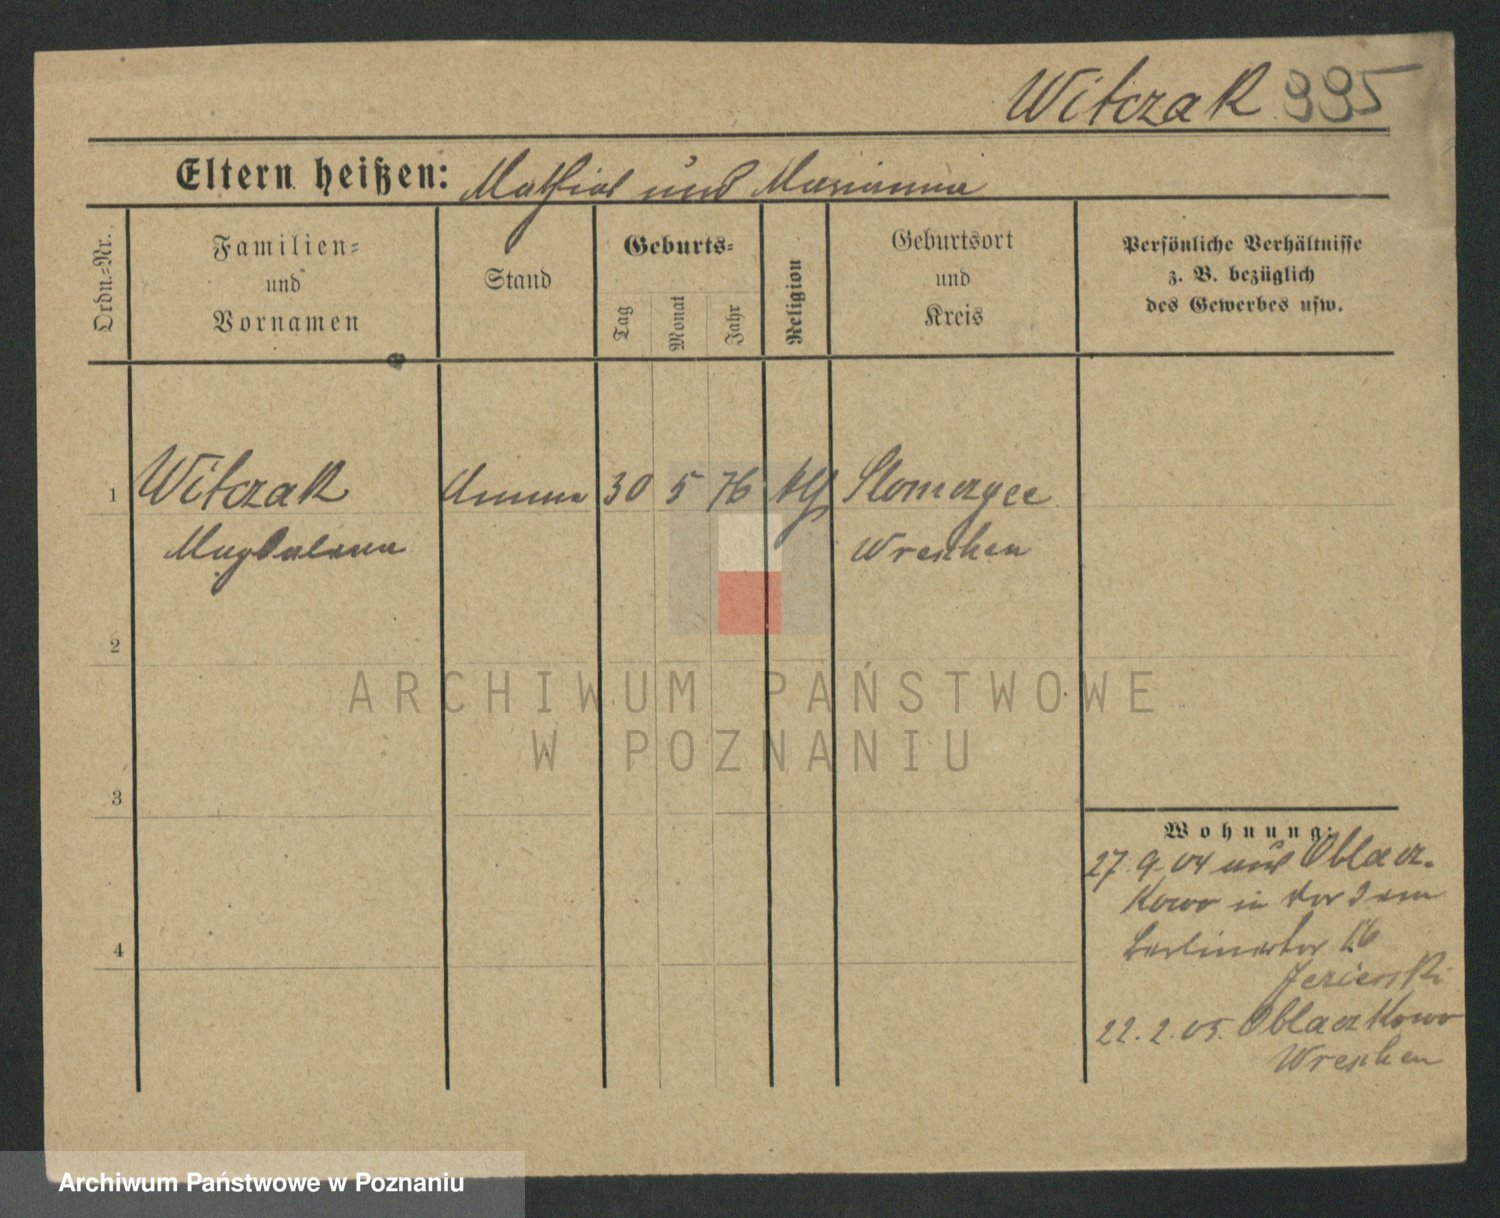 Witczak 995
Eltern heißen: Mathias und Marianna
Ordn.-Nr.
Familien-
und
Vornamen
Stand
Geburts-
Tag
Monat
Jahr
Religion
Geburtsort
und
Kreis
Persönliche Verhältnisse
z. B. bezüglich
des Gewerbes usw.
1 Witczak Amme 30 5 76 kth
Magdalena Wreschen
2
3
4
Wohnung:
27. 9. 04 aus Oblacz-
kowo in vor dem
Berlinertor 16
Jezierski
22. 2. 05. Oblaczkowo
Wreschen
ARCHIWUM PAŃSTWOWE
W POZNANIU
Archiwum Państwowe w Poznaniu